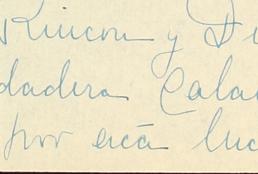 Rincon y Di
dadera Cala
por esta luc